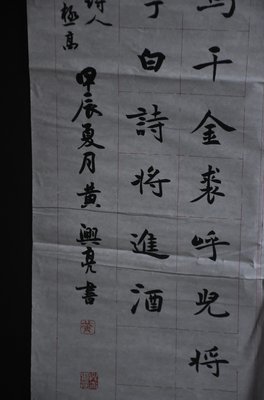 千金裘呼兒將
白詩將進酒
詩人
極高
甲辰夏月黃興亮書